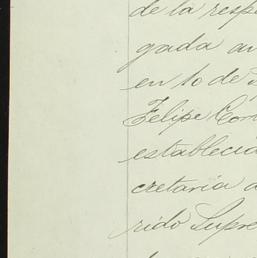 de la resp
gada an
en 10 de
Felipe Cor
establecid
cretaria d
rido Supre